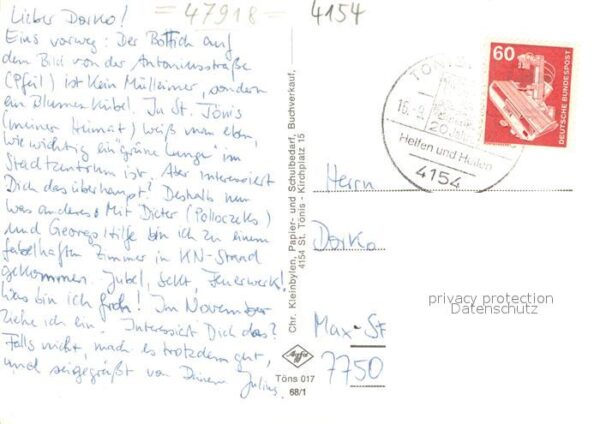 = 47918 =
4154
Lieber Dorko!
Eins vorweg: Der Bottich auf
dem Bild von der Antoniusstraße
(Pfeil) ist kein Mülleimer, sondern
ein Blumenkübel! In St. Tönis
(meiner Heimat) weiß man eben,
wie wichtig ein "grüne Lunge" im
Stadtzentrum ist. Aber interessiert
Dich das überhaupt? Deshalb nun
was anderes: Mit Dieter (Polloczeks)
und Georgs Hilfe bin ich zu einem
fabelhaften Zimmer in KN-Stand
gekommen. Jubel, Sekt, Feuerwerk!
Was bin ich froh! Im November
ziehe ich ein. Interessiert Dich das?
Falls nicht, mach es trotzdem gut,
und sei gegrüßt von Deinem Julius.
Chr. Kleinbylen, Papier- und Schulbedarf, Buchverkauf,
4154 St. Tönis - Kirchplatz 15
Agfa
Töns 017
68/1
TÖNIS
16.9.
20 Jahre
Helfen und Heilen
4154
60
DEUTSCHE BUNDESPOST
Herrn
Dorko
Max-St
7750
privacy protection
Datenschutz